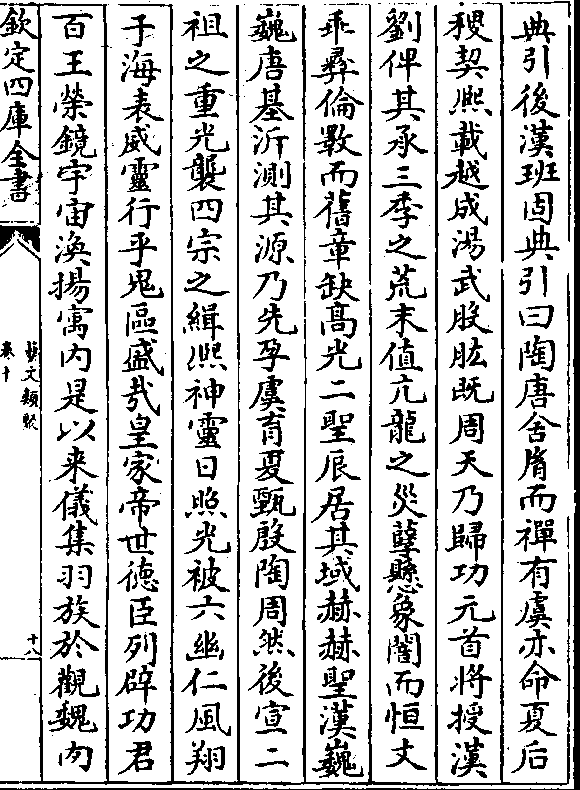 典引後漢班固典引曰陶唐舍𦙍而禪有虞亦命夏后
稷契熙載越成湯武股肱既周天乃歸功元首將授漢
劉俾其承三季之荒末值亢龍之災孽懸象闇而恒文
乖彝倫斁而舊章缺髙光二聖辰居其域赫赫聖漢巍
巍唐基泝測其源乃先孕虞育夏甄殷陶周然後宣二
祖之重光襲四宗之緝熙神靈日照光被六幽仁風翔
于海表威靈行乎鬼區盛哉皇家帝世德臣列辟功君
百王榮鏡宇宙渙揚寓内是以来儀集羽族於觀魏肉
欽定四庫全書
藝文類聚
卷十
十八